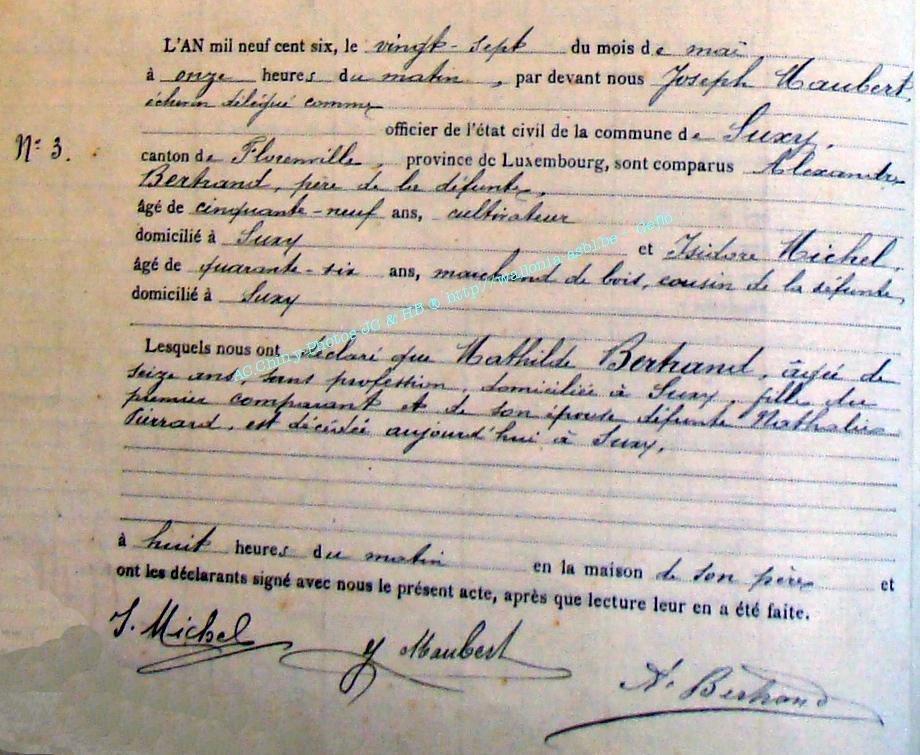 L'AN mil neuf cent six, le vingt-sept du mois de mai
à onze heures du matin, par devant nous Joseph Maubert,
échevin délégué comme
officier de l'état civil de la commune de Suxy,
N° 3.
canton de Florenville, province de Luxembourg, sont comparus Alexandre
Bertrand, père de la défunte,
âgé de cinquante-neuf ans, cultivateur
domicilié à Suxy et Isidore Michel,
âgé de quarante-six ans, marchand de bois, cousin de la défunte,
domicilié à Suxy
AC.Chiny-Photos JC & HB © http://wallonia.asbl.be - Geflo
Lesquels nous ont déclaré que Mathilde Bertrand, âgée de
seize ans, sans profession, domiciliée à Suxy, fille du
premier comparant et de son épouse défunte Nathalie
Pierrard, est décédée aujourd'hui à Suxy,
à huit heures du matin en la maison de son père et
ont les déclarants signé avec nous le présent acte, après que lecture leur en a été faite.
J. Michel J Maubert
A. Bertrand